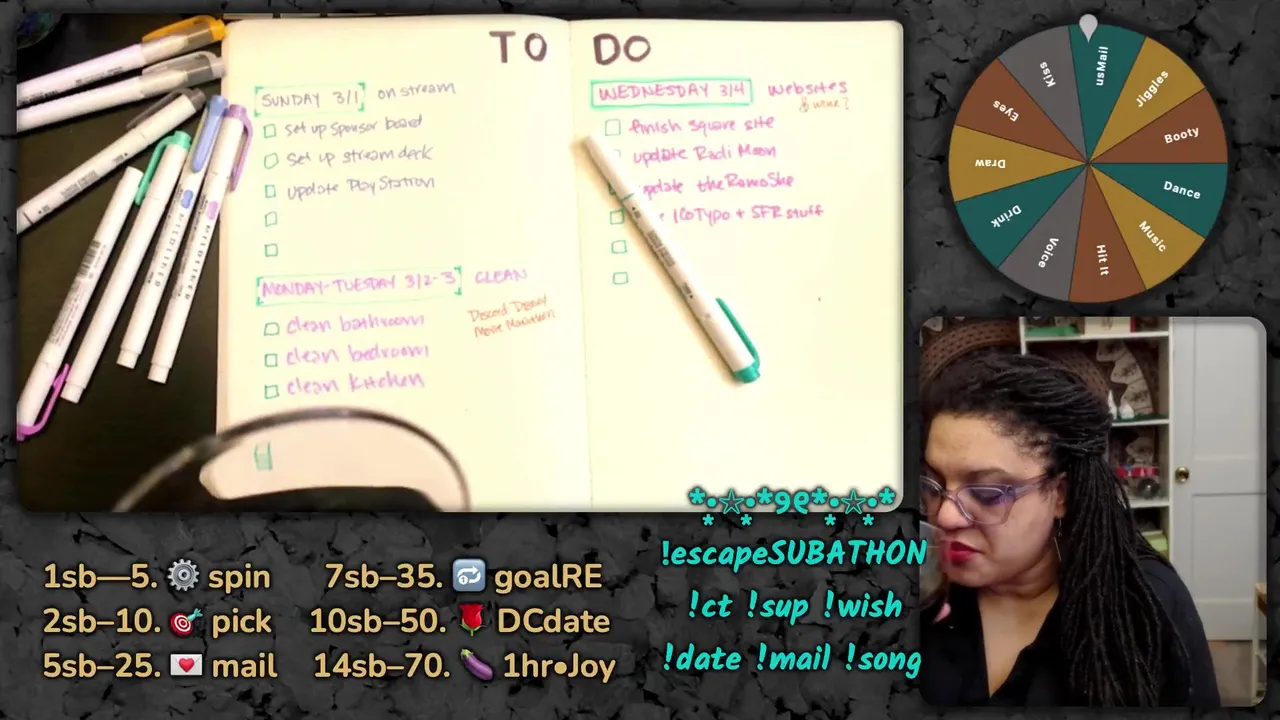 TO DO
SUNDAY 3/1 on stream
set up sponsor board
set up stream deck
update PlayStation
MONDAY-TUESDAY 3/2-3 CLEAN
clean bathroom
clean bedroom
clean kitchen
Discord
Movie Marathon
WEDNESDAY 3/4 websites
& wine?
finish square site
update Radi Moon
update theRamoShe
16Typo + SFR stuff
usMail
Jiggles
Booty
Dance
Music
Hit It
Voice
Drink
Draw
Eyes
Kiss
1sb—5. ⚙️ spin
2sb–10. 🎯 pick
5sb–25. 💌 mail
7sb–35. 🔁 goalRE
10sb–50. 🌹 DCdate
14sb–70. 🍆 1hr•Joy
*•☆•*୨୧*•☆•*
* * * *
!escapeSUBATHON
!ct !sup !wish
!date !mail !song